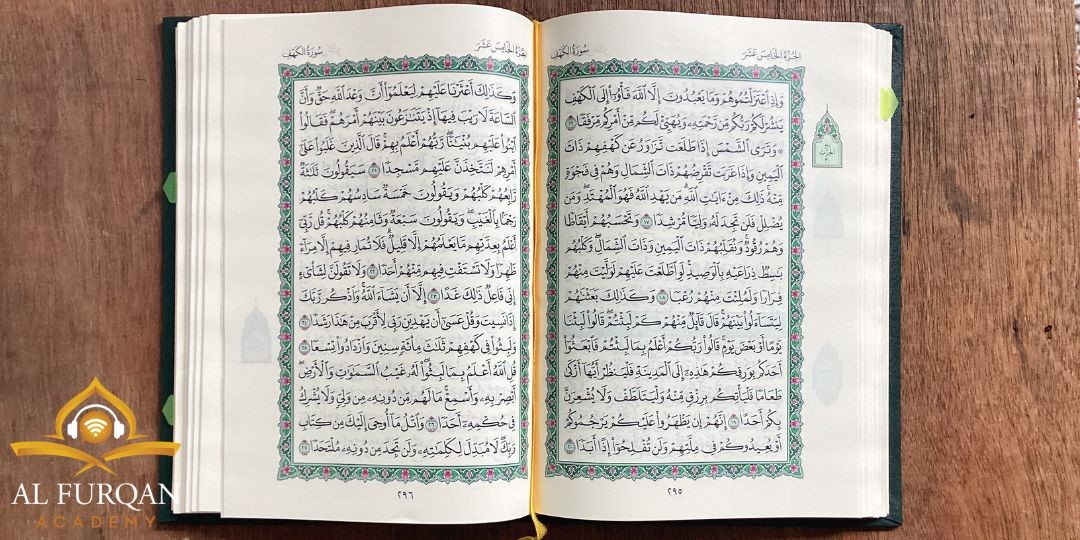 سُورَةُ الكَهْفِ
الجُزْءُ الخَامِسَ عَشَرَ
وَإِذِ ٱعْتَزَلْتُمُوهُمْ وَمَا يَعْبُدُونَ إِلَّا ٱللَّهَ فَأْوُۥٓا۟ إِلَى ٱلْكَهْفِ
يَنشُرْ لَكُمْ رَبُّكُم مِّن رَّحْمَتِهِۦ وَيُهَيِّئْ لَكُم مِّنْ أَمْرِكُم مِّرْفَقًا ١٦
۞ وَتَرَى ٱلشَّمْسَ إِذَا طَلَعَت تَّزَٰوَرُ عَن كَهْفِهِمْ ذَاتَ
ٱلْيَمِينِ وَإِذَا غَرَبَت تَّقْرِضُهُمْ ذَاتَ ٱلشِّمَالِ وَهُمْ فِى فَجْوَةٍ
مِّنْهُ ۚ ذَٰلِكَ مِنْ ءَايَٰتِ ٱللَّهِ ۗ مَن يَهْدِ ٱللَّهُ فَهُوَ ٱلْمُهْتَدِ ۖ وَمَن
يُضْلِلْ فَلَن تَجِدَ لَهُۥ وَلِيًّا مُّرْشِدًا ١٧ وَتَحْسَبُهُمْ أَيْقَاظًا
وَهُمْ رُقُودٌ ۚ وَنُقَلِّبُهُمْ ذَاتَ ٱلْيَمِينِ وَذَاتَ ٱلشِّمَالِ ۖ وَكَلْبُهُم
بَٰسِطٌ ذِرَاعَيْهِ بِٱلْوَصِيدِ ۚ لَوِ ٱطَّلَعْتَ عَلَيْهِمْ لَوَلَّيْتَ مِنْهُمْ
فِرَارًا وَلَمُلِئْتَ مِنْهُمْ رُعْبًا ١٨ وَكَذَٰلِكَ بَعَثْنَٰهُمْ
لِيَتَسَآءَلُوا۟ بَيْنَهُمْ ۚ قَالَ قَآئِلٌ مِّنْهُمْ كَمْ لَبِثْتُمْ ۖ قَالُوا۟ لَبِثْنَا
يَوْمًا أَوْ بَعْضَ يَوْمٍ ۚ قَالُوا۟ رَبُّكُمْ أَعْلَمُ بِمَا لَبِثْتُمْ فَٱبْعَثُوٓا۟
أَحَدَكُم بِوَرِقِكُمْ هَٰذِهِۦٓ إِلَى ٱلْمَدِينَةِ فَلْيَنظُرْ أَيُّهَآ أَزْكَىٰ
طَعَامًا فَلْيَأْتِكُم بِرِزْقٍ مِّنْهُ وَلْيَتَلَطَّفْ وَلَا يُشْعِرَنَّ
بِكُمْ أَحَدًا ١٩ إِنَّهُمْ إِن يَظْهَرُوا۟ عَلَيْكُمْ يَرْجُمُوكُمْ
أَوْ يُعِيدُوكُمْ فِى مِلَّتِهِمْ وَلَن تُفْلِحُوٓا۟ إِذًا أَبَدًا ٢٠
٢٩٥
الجُزْءُ الخَامِسَ عَشَرَ
سُورَةُ الكَهْفِ
وَكَذَٰلِكَ أَعْثَرْنَا عَلَيْهِمْ لِيَعْلَمُوٓا۟ أَنَّ وَعْدَ ٱللَّهِ حَقٌّ وَأَنَّ
ٱلسَّاعَةَ لَا رَيْبَ فِيهَآ إِذْ يَتَنَٰزَعُونَ بَيْنَهُمْ أَمْرَهُمْ ۖ فَقَالُوا۟
ٱبْنُوا۟ عَلَيْهِم بُنْيَٰنًا ۖ رَّبُّهُمْ أَعْلَمُ بِهِمْ ۚ قَالَ ٱلَّذِينَ غَلَبُوا۟ عَلَىٰٓ
أَمْرِهِمْ لَنَتَّخِذَنَّ عَلَيْهِم مَّسْجِدًا ٢١ سَيَقُولُونَ ثَلَٰثَةٌ
رَّابِعُهُمْ كَلْبُهُمْ وَيَقُولُونَ خَمْسَةٌ سَادِسُهُمْ كَلْبُهُمْ
رَجْمًۢا بِٱلْغَيْبِ ۖ وَيَقُولُونَ سَبْعَةٌ وَثَامِنُهُمْ كَلْبُهُمْ ۚ قُل رَّبِّىٓ
أَعْلَمُ بِعِدَّتِهِم مَّا يَعْلَمُهُمْ إِلَّا قَلِيلٌ ۗ فَلَا تُمَارِ فِيهِمْ إِلَّا مِرَآءً
ظَٰهِرًا وَلَا تَسْتَفْتِ فِيهِم مِّنْهُمْ أَحَدًا ٢٢ وَلَا تَقُولَنَّ لِشَا۟ىْءٍ
إِنِّى فَاعِلٌ ذَٰلِكَ غَدًا ٢٣ إِلَّآ أَن يَشَآءَ ٱللَّهُ ۚ وَٱذْكُر رَّبَّكَ
إِذَا نَسِيتَ وَقُلْ عَسَىٰٓ أَن يَهْدِيَنِ رَبِّى لِأَقْرَبَ مِنْ هَٰذَا رَشَدًا ٢٤
وَلَبِثُوا۟ فِى كَهْفِهِمْ ثَلَٰثَ مِا۟ئَةٍ سِنِينَ وَٱزْدَادُوا۟ تِسْعًا ٢٥
قُلِ ٱللَّهُ أَعْلَمُ بِمَا لَبِثُوا۟ ۖ لَهُۥ غَيْبُ ٱلسَّمَٰوَٰتِ وَٱلْأَرْضِ ۖ
أَبْصِرْ بِهِۦ وَأَسْمِعْ ۚ مَا لَهُم مِّن دُونِهِۦ مِن وَلِىٍّ وَلَا يُشْرِكُ
فِى حُكْمِهِۦٓ أَحَدًا ٢٦ وَٱتْلُ مَآ أُوحِىَ إِلَيْكَ مِن كِتَابِ
رَبِّكَ ۖ لَا مُبَدِّلَ لِكَلِمَٰتِهِۦ وَلَن تَجِدَ مِن دُونِهِۦ مُلْتَحَدًا ٢٧
٢٩٦
AL FURQAN
ACADEMY